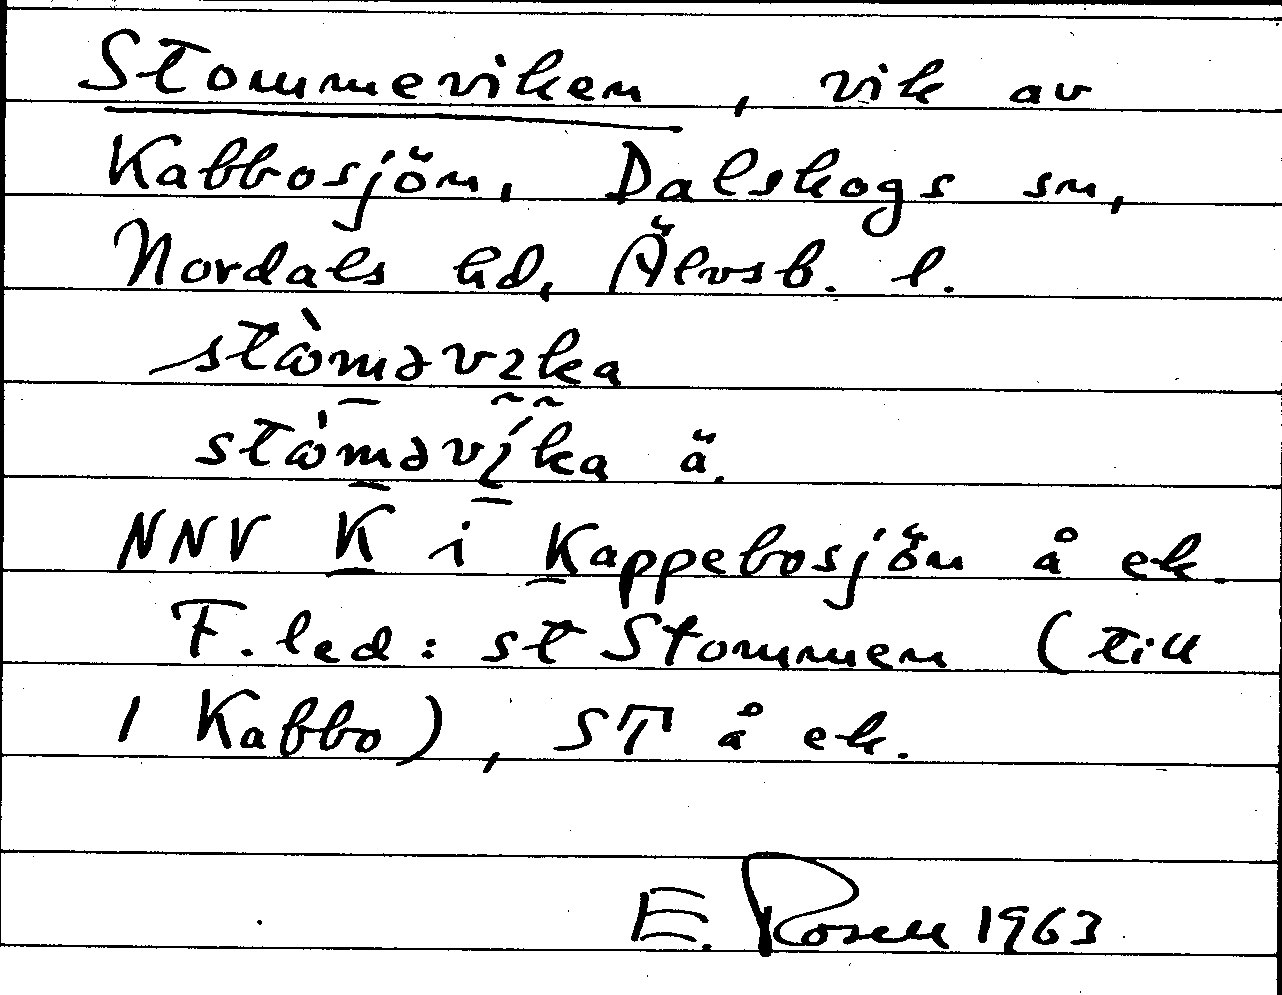 Stommeviken, vik av
Kabbosjön, Dalskogs sn,
Nordals hd, Älvsb. l.
stòməvıka
stòməvíka ä.
NNV K i Kappebosjön å ek.
F. led: st Stommen (till
1 Kabbo), ST å ek.
E. Rosell 1963